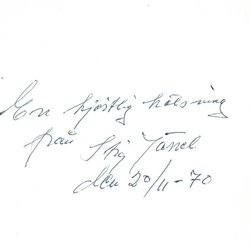 En hjärtlig hälsning
från Stig Järrel.
den 20/11-70